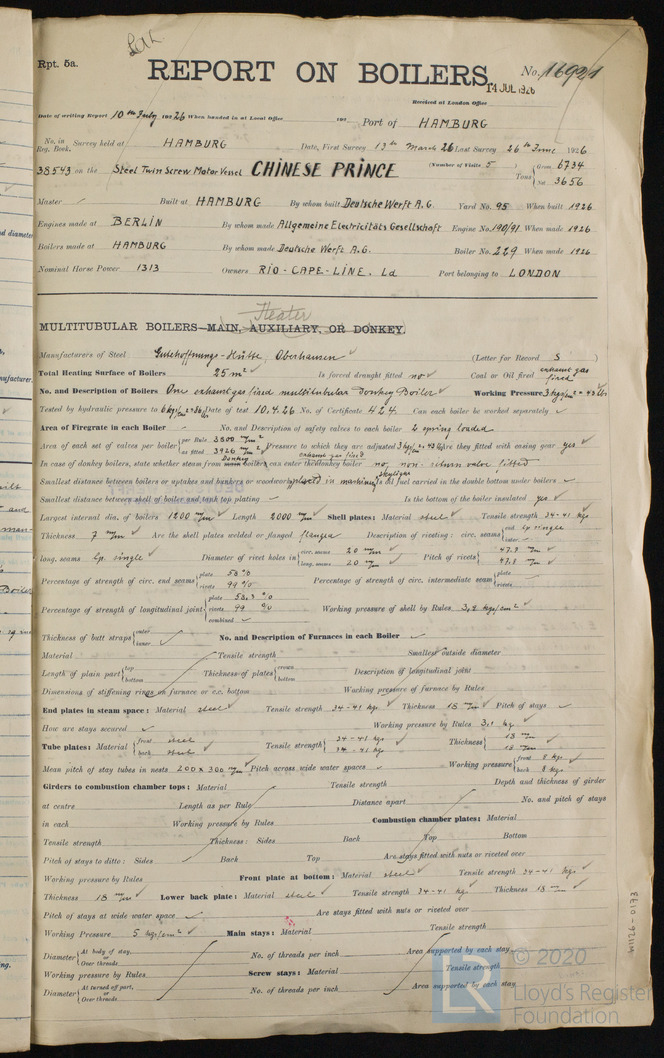 Rpt. 5a.
REPORT ON BOILERS.
No. 16921
14 JUL 1926
Received at London Office
Date of writing Report 10th July 1926 When handed in at Local Office 192 Port of HAMBURG
No. in Reg. Book. Survey held at HAMBURG Date, First Survey 13th March 26 Last Survey 26th June 1926
38543 on the Steel Twin Screw Motor Vessel CHINESE PRINCE (Number of Visits 5) Tons Gross 6734 Net 3656
Master Built at HAMBURG By whom built Deutsche Werft A.G. Yard No. 95 When built 1926
Engines made at BERLIN By whom made Allgemeine Electricitäts Gesellschaft Engine No. 190/91 When made 1926
Boilers made at HAMBURG By whom made Deutsche Werft A.G. Boiler No. 229 When made 1926
Nominal Horse Power 1313 Owners RIO-CAPE-LINE. Ld Port belonging to LONDON
Heater
MULTITUBULAR BOILERS—MAIN, AUXILIARY, OR DONKEY.
Manufacturers of Steel Gutehoffnungs-Hütte, Oberhausen (Letter for Record S )
Total Heating Surface of Boilers 25 m² Is forced draught fitted no Coal or Oil fired exhaust gas fired
No. and Description of Boilers One exhaust gas fired multitubular donkey Boiler Working Pressure 3 kgs/cm² = 43 lbs
Tested by hydraulic pressure to 6 kgs/cm² = 86 lbs Date of test 10.4.26 No. of Certificate 424. Can each boiler be worked separately
Area of Firegrate in each Boiler No. and Description of safety valves to each boiler 2 spring loaded
Area of each set of valves per boiler per Rule 3800 m/m² as fitted 3926 m/m² Pressure to which they are adjusted 3 kg/cm² = 43 lbs Are they fitted with easing gear yes
In case of donkey boilers, state whether steam from main boilers can enter the donkey boiler no, non-return valve fitted
Donkey exhaust gas fired
Smallest distance between boilers or uptakes and bunkers or woodwork placed in machinery skylight Is oil fuel carried in the double bottom under boilers
Smallest distance between shell of boiler and tank top plating Is the bottom of the boiler insulated yes
Largest internal dia. of boilers 1200 m/m Length 2000 m/m Shell plates: Material steel Tensile strength 34-41 kgs
Thickness 7 m/m Are the shell plates welded or flanged flanged Description of riveting: circ. seams end lp single inter.
long. seams lp. single Diameter of rivet holes in circ. seams 20 m/m long. seams 20 m/m Pitch of rivets 47.9 m/m 47.8 m/m
Percentage of strength of circ. end seams plate 58 % rivets 99 % Percentage of strength of circ. intermediate seam plate rivets
Percentage of strength of longitudinal joint plate 58,3 % rivets 99 % combined Working pressure of shell by Rules 3,2 kgs/cm²
Thickness of butt straps outer inner No. and Description of Furnaces in each Boiler
Material Tensile strength Smallest outside diameter
Length of plain part top bottom Thickness of plates crown bottom Description of longitudinal joint
Dimensions of stiffening rings on furnace or c.c. bottom Working pressure of furnace by Rules
End plates in steam space: Material steel Tensile strength 34-41 kgs Thickness 18 m/m Pitch of stays
How are stays secured Working pressure by Rules 3,1 kg
Tube plates: Material front steel back steel Tensile strength 34-41 kgs 34-41 kgs Thickness 18 m/m 18 m/m
Mean pitch of stay tubes in nests 200 x 300 m/m Pitch across wide water spaces Working pressure front 8 kgs back 8 kgs
Girders to combustion chamber tops: Material Tensile strength Depth and thickness of girder
at centre Length as per Rule Distance apart No. and pitch of stays
in each Working pressure by Rules Combustion chamber plates: Material
Tensile strength Thickness: Sides Back Top Bottom
Pitch of stays to ditto: Sides Back Top Are stays fitted with nuts or riveted over
Working pressure by Rules Front plate at bottom: Material steel Tensile strength 34-41 kgs
Thickness 18 m/m Lower back plate: Material steel Tensile strength 34-41 kg Thickness 18 m/m
Pitch of stays at wide water space Are stays fitted with nuts or riveted over
Working Pressure 5 kgs/cm² Main stays: Material Tensile strength
Diameter At body of stay, or Over threads No. of threads per inch Area supported by each stay
Working pressure by Rules Screw stays: Material Tensile strength
Diameter At turned off part, or Over threads No. of threads per inch Area supported by each stay
W1126-0173
LR © 2020
Lloyd's Register
Foundation